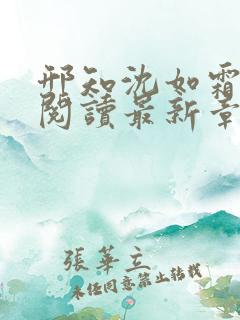 邢知沈如霜
閱讀最新章
張華立
未經同意禁止轉載